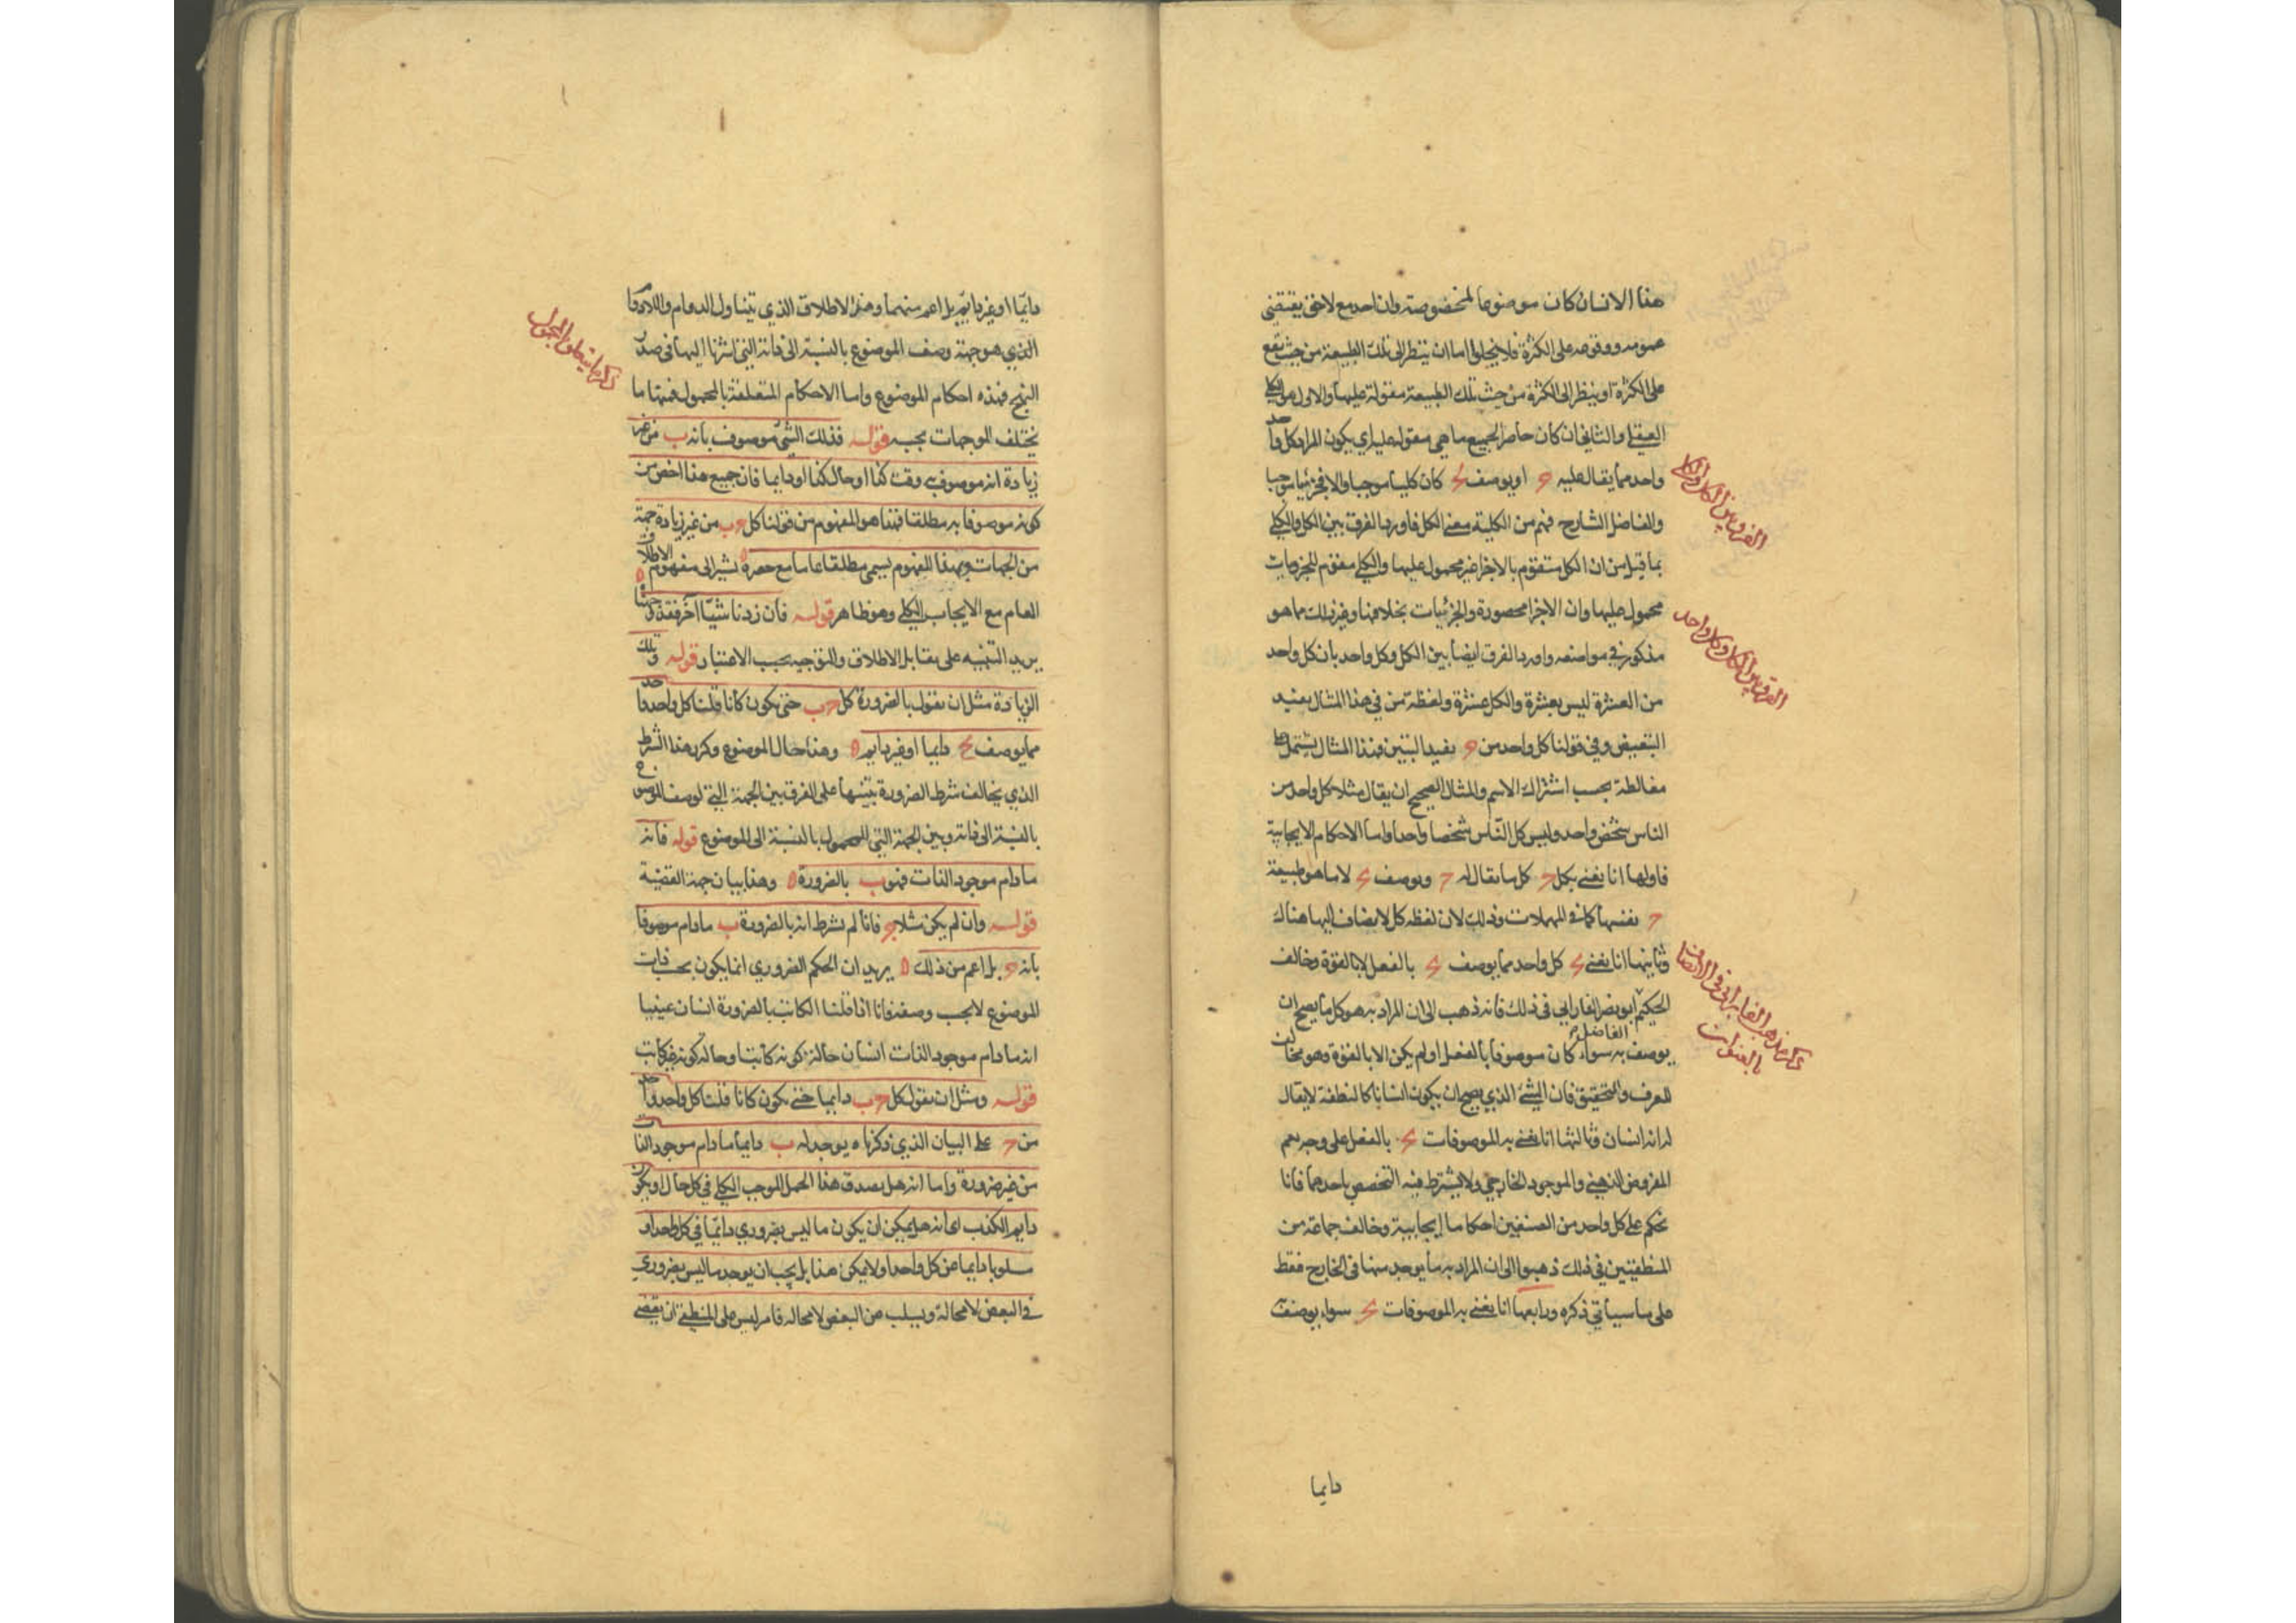 هذا الانسان كان موضوعا لمخصوصة وان اخذ مع لاحق يقتضي
عمومه ووقوعه على الكثرة فلا يخلو اما ان ينظر الى تلك الطبيعة من حيث تقع
على الكثرة او ينظر الى الكثرة من حيث تلك الطبيعة مقولة عليها والاول هو الكلي
العقلي والثاني ان كان حاصرا لجميع ما هي مقولة عليه اي يكون المراد كل واحد
واحد مما يقال عليه ج او يوصف بج كان كليا موجبا والا فجزئيا موجبا
والفاضل الشارح فهم من الكلية معنى الكل فاورد الفرق بين الكل والكلي
بما قيل من ان الكل متقوم بالاجزا غير محمول عليها والكلي مقوم للجزويات
محمول عليها وان الاجزا محصورة والجزئيات بخلافها وغير ذلك مما هو
مذكور في مواضعه واورد الفرق ايضا بين الكل وكل واحد بان كل واحد
من العشرة ليس بعشرة والكل عشرة ولفظة من في هذا المثال يفيد
التبعيض وفي قولنا كل واحد من ج يفيد التبيين فهذا المثال يشتمل على
مغالطة بحسب اشتراك الاسم والمثال الصحيح ان يقال مثلا كل واحد من
الناس شخص واحد وليس كل الناس شخصا واحدا واما الاحكام الايجابية
فاولها انا نعني بكل ج كل ما يقال له ج ويوصف بج لا ما هو طبيعة
ج نفسها كما في المهملات وذلك لان لفظه كل لا يضاف اليها هناك
وثانيها انا نعني بج كل واحد مما يوصف بج بالفعل لا بالقوة وخالف
الحكيم ابو نصر الفارابي في ذلك فانه ذهب الى ان المراد به هو كل ما يصح ان
الفاضل
يوصف به سواء كان موصوفا بالفعل او لم يكن الا بالقوة وهو مخالف
للعرف والتحقيق فان الشئ الذي يصح ان يكون انسانا كالنطفة لا يقال
له انه انسان وثالثها انا نعني به الموصوفات بج بالفعل على وجه يعم
المفروض الذهني والموجود الخارجي ولا يشترط فيه التخصص باحدهما فانا
نحكم على كل واحد من الصنفين احكاما ايجابية وخالف جماعة من
المنطقيين في ذلك ذهبوا الى ان المراد به ما يوجد منها في الخارج فقط
على ما سيأتي ذكره ورابعها انا نعني به الموصوفات بج سواء يوصف
دايما
الفرق بين الكل والكلي
الفرق بين الكل وكل واحد
ذكر مذهب الفارابي في الاتصاف
بالعنوان
دايما او غير دايم بل اعم منهما وهذا الاطلاق الذي يتناول الدوام واللادوام
الذي هو جهة وصف الموضوع بالنسبة الى ذاته التي اشرنا اليها في صدر
النهج فهذه احكام الموضوع واما الاحكام المتعلقة بالمحمول فمنها ما
يختلف الموجهات بحسبه قوله فذلك الشئ موصوف بأنه ب من غير
زيادة انه موصوف به وقت كذا او حال كذا او دايما فان جميع هذا اخص من
كونه موصوفا به مطلقا فهذا هو المفهوم من قولنا كل ج ب من غير زيادة جهة
من الجهات وبهذا المفهوم يسمى مطلقا عاما مع حصره يشير الى مفهوم الاطلاق
العام مع الايجاب الكلي وهو ظاهر قوله فان زدنا شيئا آخر فقد وجهناه
يريد التنبيه على تقابل الاطلاق والتوجيه بحسب الاعتبار قوله وتلك
الزيادة مثل ان نقول بالضرورة كل ج ب حتى يكون كأنا قلنا كل واحد واحد
مما يوصف بج دايما او غير دايم وهذا حال الموضوع وكرر هذا الشرط
الذي يخالف شرط الضرورة تنبيها على الفرق بين الجهة التي لوصف الموضوع
بالنسبة الى ذاته وبين الجهة التي للمحمول بالنسبة الى الموضوع قوله فانه
ما دام موجود الذات فهو ب بالضرورة وهذا بيان جهة القضية
قوله وان لم يكن مثلا ج فانا لم نشرط انه بالضرورة ب ما دام موصوفا
بانه ج بل اعم من ذلك يريد ان الحكم الضروري انما يكون بحسب ذات
الموضوع لا بحسب وصفه فانا اذا قلنا الكاتب بالضرورة انسان عنينا
انه ما دام موجود الذات انسان حالة كونه كاتبا وحالة كونه غير كاتب
قوله ومثل ان نقول كل ج ب دايما حتى يكون كانا قلنا كل واحد واحد
من ج على البيان الذي ذكرناه يوجد له ب دايما ما دام موجود الذات
من غير ضرورة واما انه هل يصدق هذا الحمل الموجب الكلي في كل حال او يكون
دايم الكذب اي انه هل يمكن ان يكون ما ليس بضروري دايما في كل واحد او
مسلوبا دايما عن كل واحد او لا يمكن هذا بل يجب ان يوجد ما ليس بضروري
في البعض لا محالة ويسلب عن البعض لا محالة فامر ليس على المنطقي ان يقضي
ذكر ما يتعلق بالمحمول